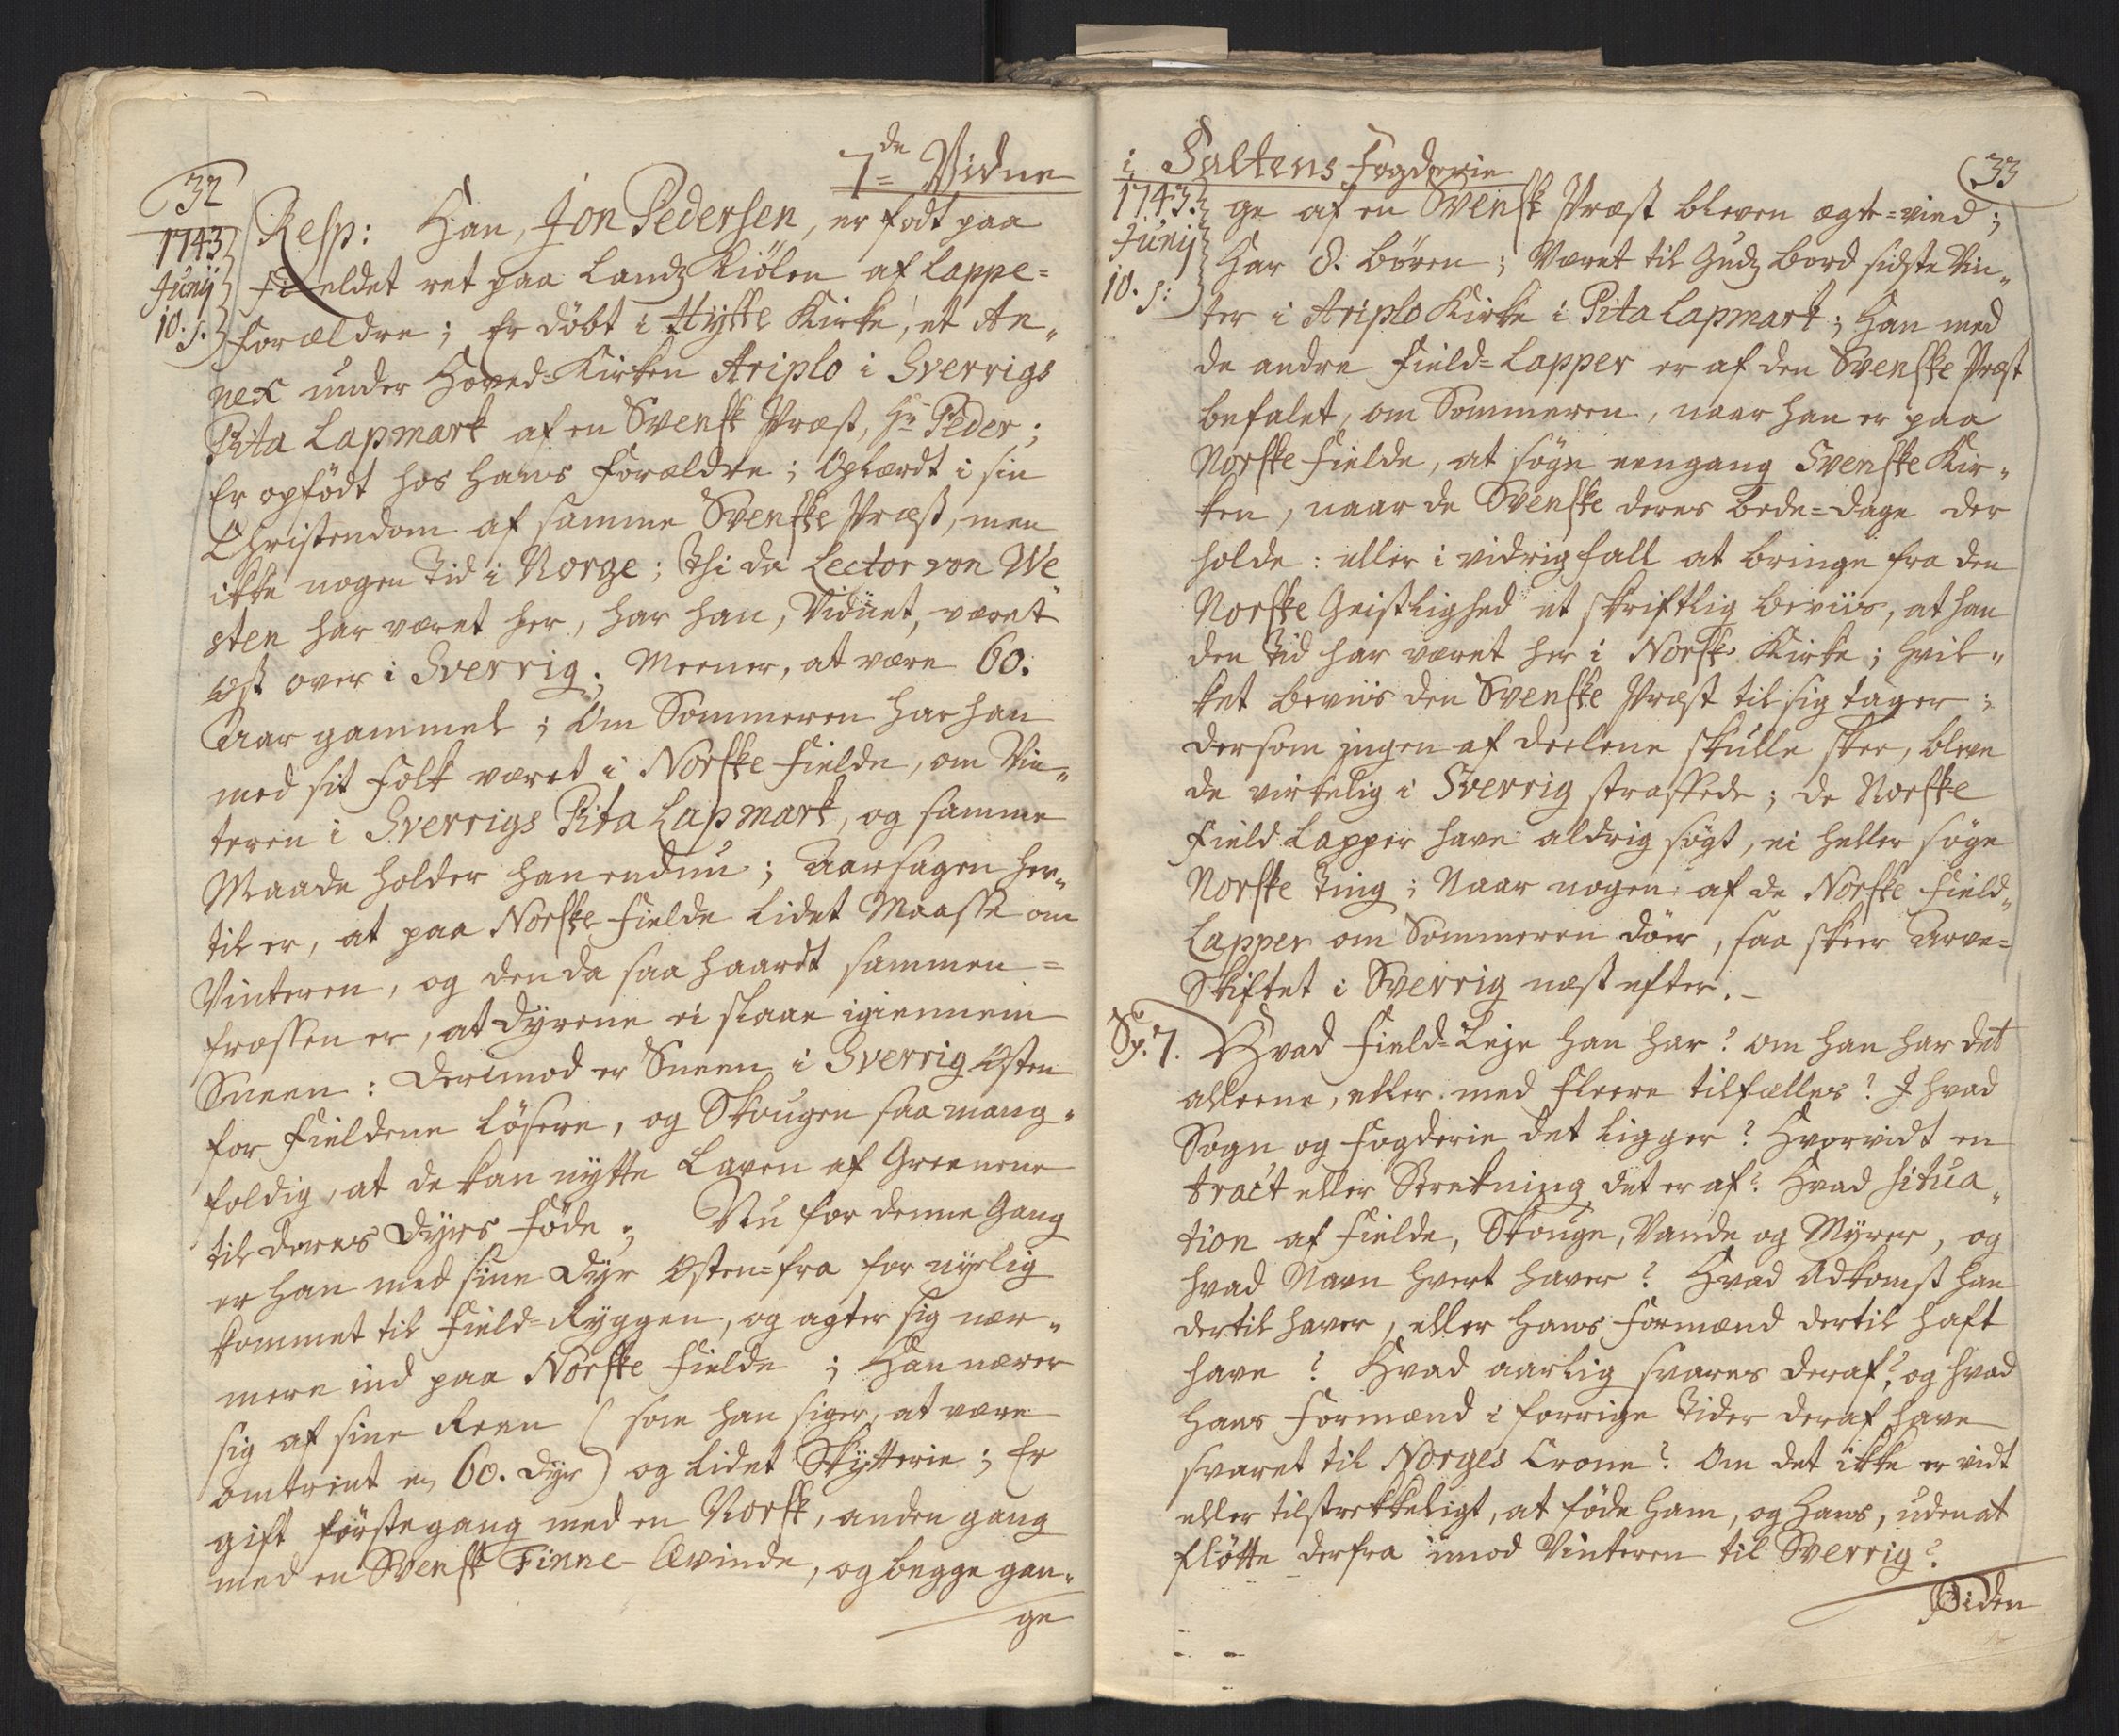 7de Vidne
32
1743
Junij
10. s:
Resp: Han, Jon Pedersen, er født paa
Fieldet ret paa Landz Kiölen af Lappe-
Forældre; Er döbt i Hysse Kirke, et An-
nex under Hoved-Kirken Ariplo i Sverrigs
Pita Lapmark af en Svensk Præst, Hr Peder;
Er opfödt hos hans Forældre; Oplærdt i sin
Christendom af samme Svenske Præst, men
ikke nogen Tid i Norge; Thi da Lector von We-
sten har været her, har han, Vidnet, været
öst over i Sverrig; Meener, at være 60.
Aar gammel; Om Sommeren har han
med sit Folk været i Norske Fielde, om Vin-
teren i Sverrigs Pita Lapmark, og samme
Maade holder han endnu; Aarsagen her-
til er, at paa Norske Fielde lidet Maasse om
Vinteren, og den da saa haardt sammen-
frossen er, at Dyrene ei slaae igiennem
Sneen: Derimod er Sneen i Sverrig Østen
for Fieldene lösere, og Skougen saa mang-
foldig, at de kan nytte Laven af Greenene
til deres Dyrs Föde; Nu for denne Gang
er han med sine Dyr Østen-fra for nyelig
kommet til Field-Ryggen, og agter sig nær-
mere ind paa Norske Fielde; Han nærer
sig af sine Reen (som han siger, at være
omtrent en 60. Dyr) og lidet Skytterie; Er
gift förstegang med en Norsk, anden gang
med en Svensk Finne-Qvinde, og begge gan-
ge
i Saltens Fogderie
33
1743.
Junij
10. s:
ge af en Svensk Præst bleven ægte-vied;
Har 8. Börn; Været til Gudz bord sidste Vin-
ter i Ariplo Kirke i Pita Lapmark; Han med
de andre Field-Lapper er af den Svenske Præst
befalet, om Sommeren, naar han er paa
Norske Fielde, at söge eengang Svenske Kir-
ken, naar de Svenske deres bede-dage der
holde: eller i vidrig fall at bringe fra den
Norske Geistlighed et skriftlig beviis, at han
den Tid har været her i Norsk Kirke; hvil-
ket beviis den Svenske Præst til sig tager;
dersom ingen af deelene skulle skee, bleve
de virkelig i Sverrig straffede; De Norske
Field Lapper have aldrig sögt, ei heller söge
Norske Ting; Naar nogen af de Norske Field-
Lapper om Sommeren döer, saa skeer Arve-
Skiftet i Sverrig næst efter.-
Sp. 7. Hvad Field-Leje han har? om han har det
alleene, eller med fleere tilfælles? I hvad
Sogn og Fogderie det ligger? Hvorvidt en
tract eller Strekning det er af? Hvad situa-
tion af Fielde, Skouge, Vande og Myrer, og
hvad Navn hvert haver? Hvad Adkomst han
dertil haver, eller hans Formænd dertil haft
have? Hvad aarlig svares deraf? og hvad
hans Formænd i forrige Tider deraf have
svaret til Norges Crone? Om det ikke er vidt
eller tilstrekkeligt, at föde ham, og hans, uden at
flötte derfra imod Vinteren til Sverrig?
Siden